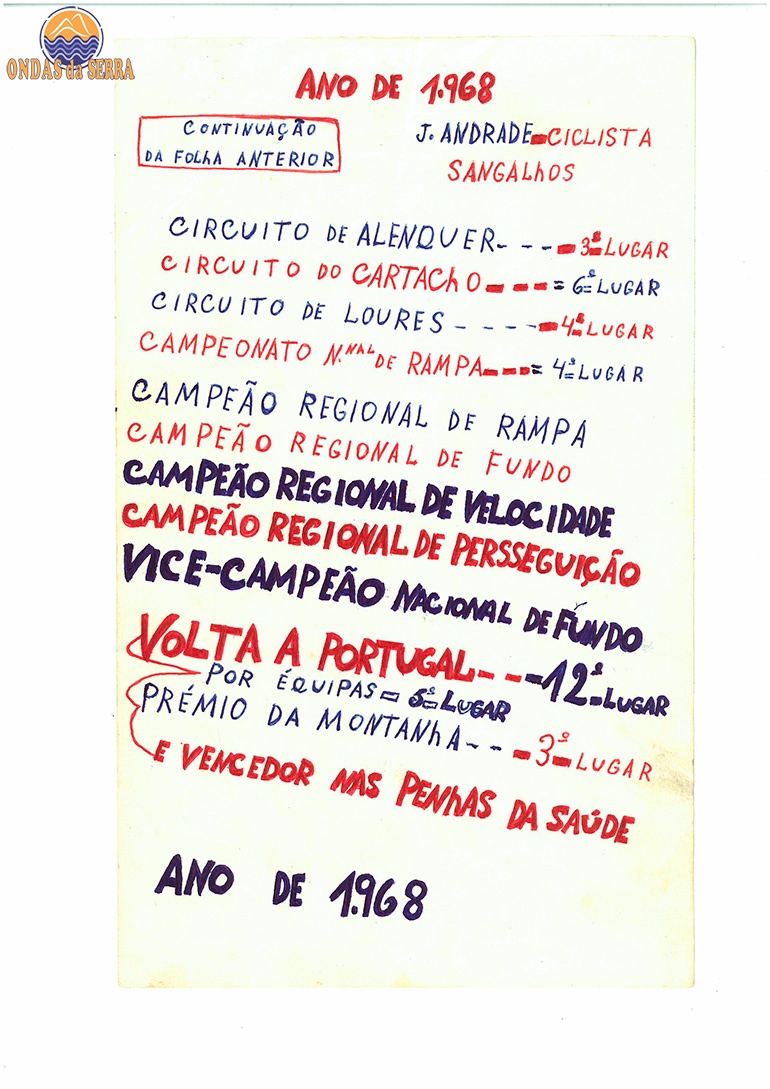 ONDAS da SERRA
ANO DE 1.968
CONTINUAÇÃO
DA FOLHA ANTERIOR
J. ANDRADE-CICLISTA
SANGALhOS
CIRCUITO DE ALENQUER- - - - 3º LUGAR
CIRCUITO DO CARTAChO - - - = 6º LUGAR
CIRCUITO DE LOURES - - - - - 4º LUGAR
CAMPEONATO N.NAL DE RAMPA - - - = 4º LUGAR
CAMPEÃO REGIONAL DE RAMPA
CAMPEÃO REGIONAL DE FUNDO
CAMPEÃO REGIONAL DE VELOCIDADE
CAMPEÃO REGIONAL DE PERSSEGUIÇÃO
VICE-CAMPEÃO NACIONAL DE FUNDO
VOLTA A PORTUGAL - - - 12º LUGAR
POR ÉQUIPAS = 5º LUGAR
PRÉMIO DA MONTANhA - - - 3º LUGAR
E VENCEDOR NAS PENhAS DA SAÚDE
ANO DE 1.968